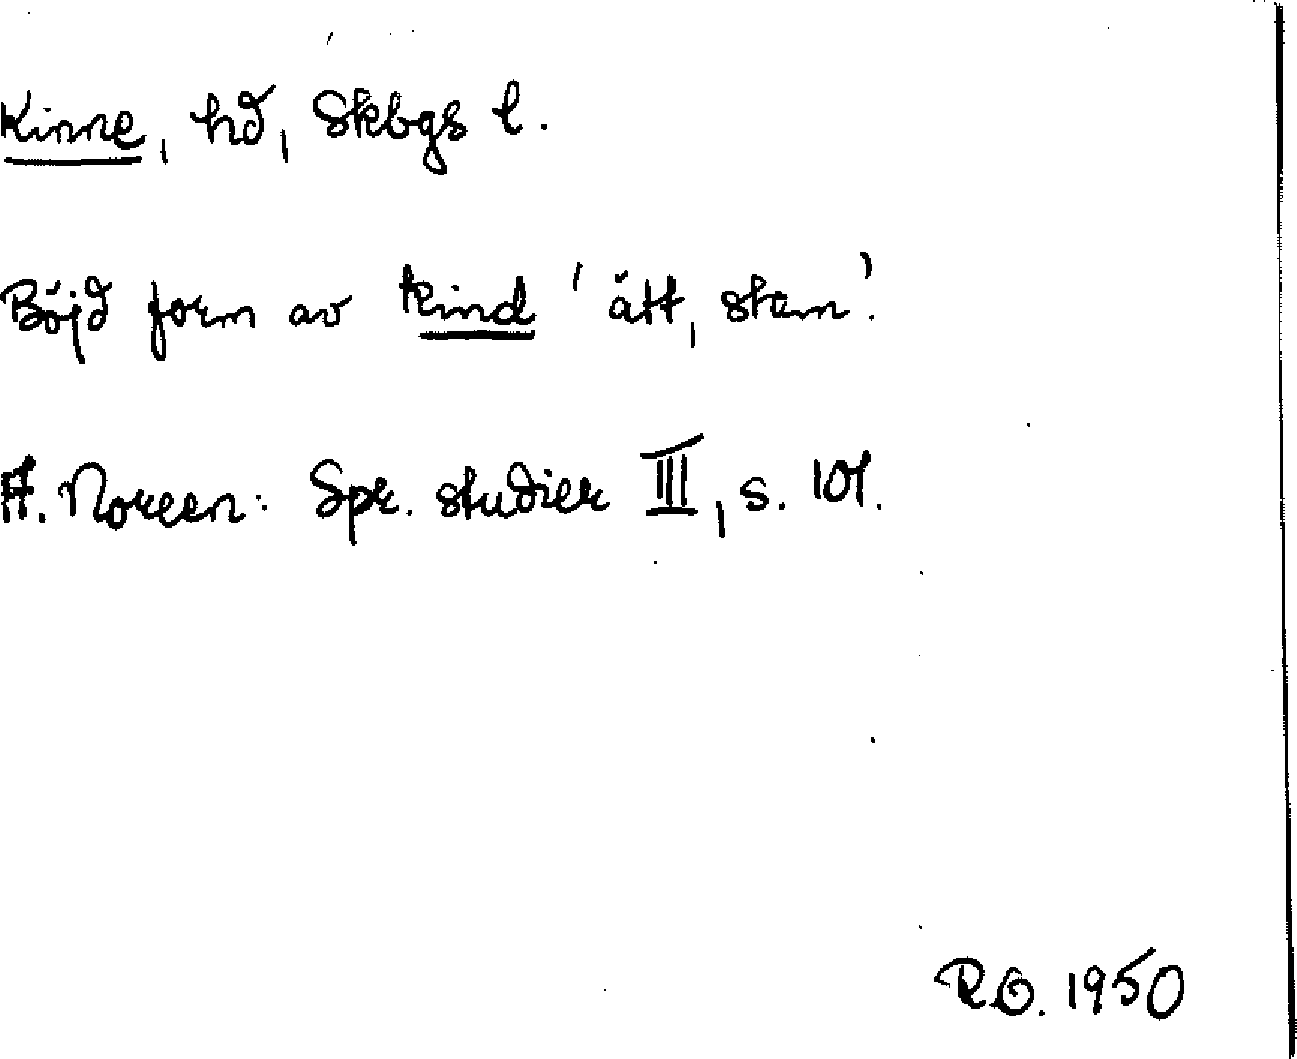 Kinne, hd, Skbgs l.
Böjd form av kind 'ätt, stam'.
A. Noreen: Spr. studier III, s. 101.
R.O. 1950